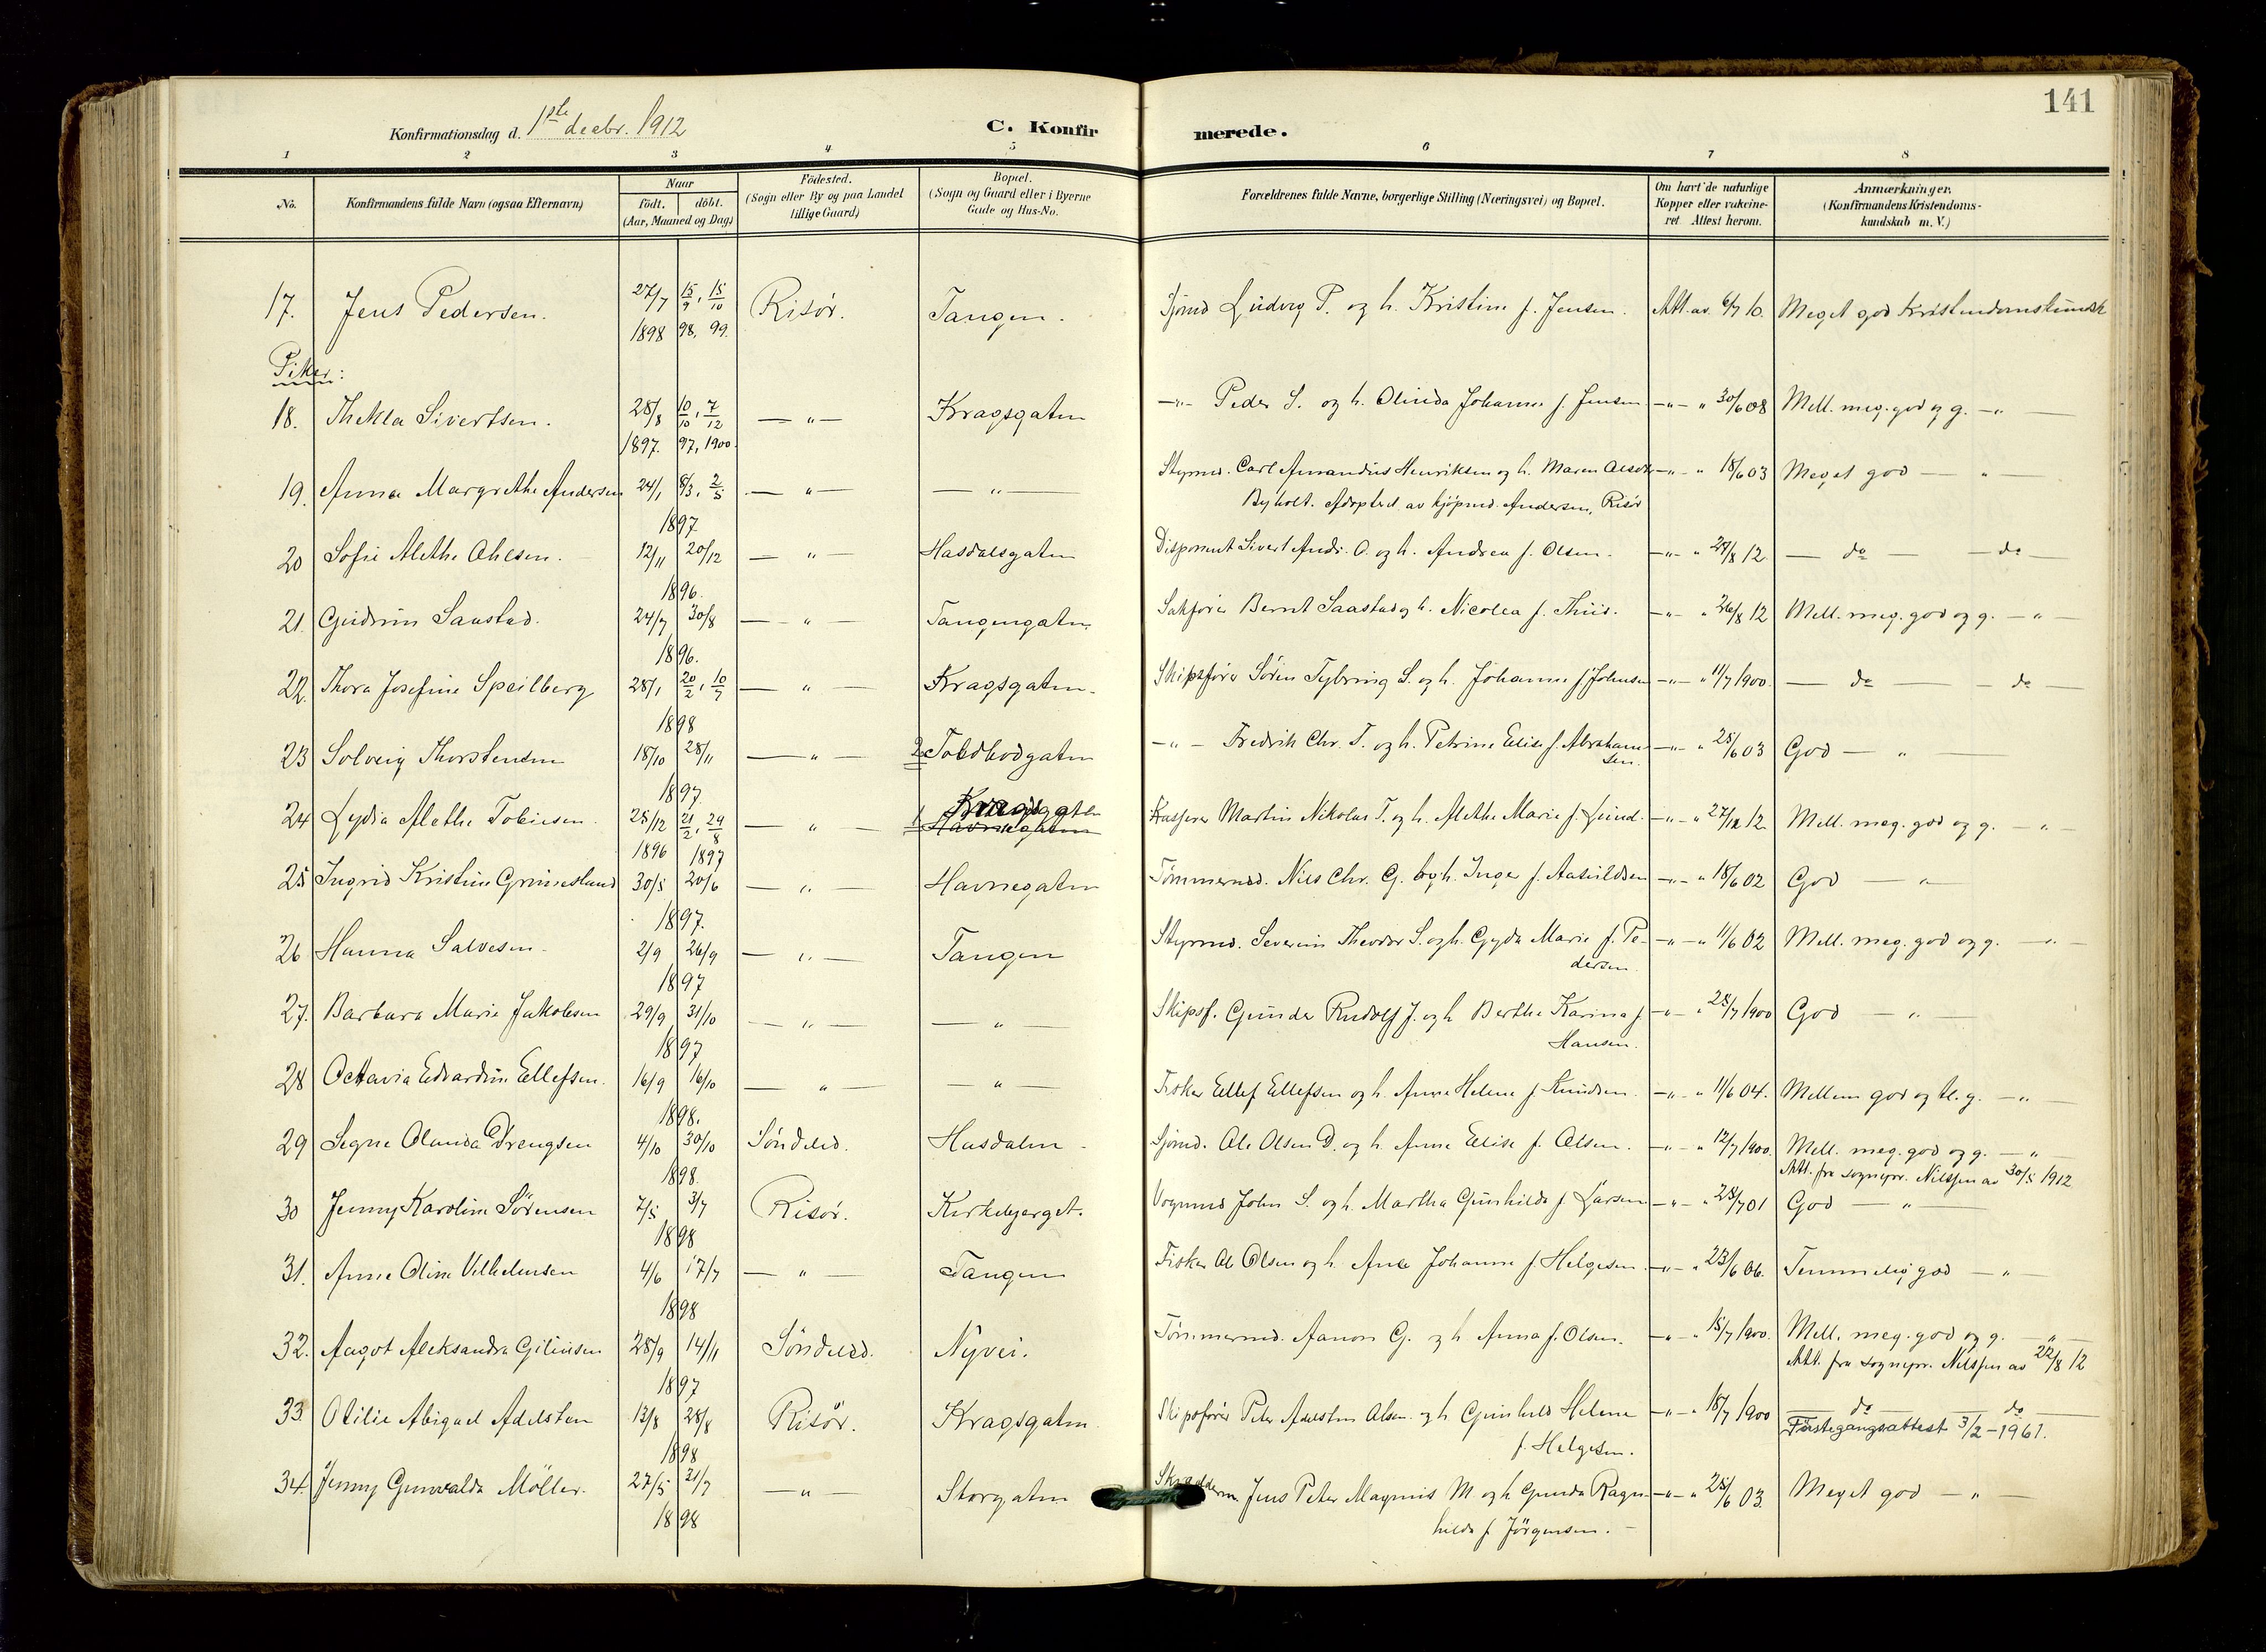 141
Konfirmationsdag d. 1ste decbr. 1912
C. Konfirmerede.
1 2 3 4 5 6 7 8
No. Konfirmandens fulde Navn (ogsaa Efternavn) Naar födt. döbt. (Aar, Maaned og Dag) Födested. (Sogn eller By og paa Landet tillige Gaard) Bopæl. (Sogn og Gaard eller i Byerne Gade og Hus-No. Forældrenes fulde Navne, borgerlige Stilling (Næringsvei) og Bopæl. Om havt de naturlige Kopper eller vakcineret. Attest herom. Anmærkninger. (Konfirmandens Kristendomskundskab m. V.)
17. Jens Pedersen. 27/7 1898 15/9, 15/10 98, 99. Risör. Tangen. Sjömd Ludvig P. og h. Kristine f. Jensen. Att. av 6/7 10. Meget god kristendomskundsk
Piker:
18. Thekla Sivertsen. 28/8 1897. 10/10, 7/12 97, 1900. — " — Kragsgaten — " — Peder S. og h. Olinda Johanne f. Jensen — " — " 30/6 08 Mell. meg. god og g. — " —
19. Anna Margrethe Andersen 24/1 8/3, 2/5 1897 — " — — " — Styrmd. Carl Amandus Henriksen og h. Maren — " — " 18/6 03 Meget god — " —
Byholt. Adopteret av kjöpmd. Andersen, Risör
20 Sofie Alethe Ohlsen. 12/11 20/12 1896. — " — Hasdalsgaten Disponent Sivert Andr. O. og h. Andrea f. Olsen. — " — " 24/8 12. — do — — do —
21. Gudrun Saastad. 24/7 30/8 1896. — " — Tangengaten Sakförer Bernt Saastad og h. Nicolea f. Thiis. — " — " 26/8 12 Mell. meg. god og g. — " —
22. Thora Josefine Speilberg 28/1 20/2, 10/7 1898 — " — Kragsgaten. Skipsförer Sören Tybring S. og h. Johanne f. Johnsen — " — " 11/7 1900. — do — — do —
23 Solveig Thorstensen 18/10 28/11 1897 — " — 2 Toldbodgaten — " — Fredrik Chr. T. og h. Petrine Elise f. Abrahamsen. — " — " 25/6 03 God — " —
24 Lydia Alethe Tobiesen. 28/12 1896 21/2, 29/8 1897 — " — 1 Kragsgaten Havnegaten Kasserer Martin Nikolai T. og h. Alethe Marie f. Lund. — " — " 27/12 12 Mell. meg. god og g. — " —
25 Ingrid Kristine Grimesland 30/5 20/6 1897. — " — Havnegaten Tömmermd. Nils Chr. G. og h. Inger f. Aasvildsen — " — " 18/6 02 God — " —
26 Hanna Salvesen. 2/9 26/9 1897 — " — Tangen Styrmd. Severin Theodor S. og h. Gyda Marie f. Pedersen. — " — " 11/6 02 Mell. meg. god og g. — " —
27. Barbara Marie Jakobsen 29/9 31/10 1897 — " — — " — Skipsf. Gunder Rudolf J. og h Berthe Karina f. Hansen. — " — " 28/7 1900 God — " —
28 Octavia Edvardine Ellefsen. 16/9 16/10 1898. — " — — " — Fisker Ellef Ellefsen og h. Anne Helene f. Knudsen. — " — " 11/6 04. Mellem god og tl. g. — " —
29 Signe Olanda Drengsen 4/10 30/10 1898. Söndeled. Hasdalen Sjömd. Ole Olsen D. og h. Anne Elise f. Olsen. — " — " 12/7 1900. Mell. meg. god og g. — " —
Att. fra sognepr. Nilssen av 30/5 1912
30 Jenny Karoline Sörensen 7/5 3/7 1898 Risör. Kirkebjerget. Vognmd John S. og h. Martha Gunhilda f. Larsen — " — " 28/7 01 God — " —
31. Anne Oline Vilhelmsen 4/6 17/7 1898 — " — Tangen Fisker Ol Olsen og h. Ane Johanne f. Helgesen. — " — " 23/6 06. Temmelig god — " —
32. Aagot Aleksandra Gilinsen 28/9 14/11 1897 Söndeled. Nyvei. Tömmermd. Aanon G. og h Anna f. Olsen. — " — " 15/7 1900. Mell. meg. god og g. — " —
Att. fra sognepr. Nilssen av 22/8 12
33 Otilie Abigael Adelsten 13/8 28/8 1898 Risör. Kragsgaten Skipsförer Peter Adelsten Olsen og h Gunhild Helene f. Helgesen. — " — " 18/7 1900 do — do
Förstegangsattest 3/2-1961.
34. Jenny Gunvalda Möller. 27/5 21/7 1898 — " — Storgaten Skrædderm. Jens Peter Magnus M og h Gunda Ragnhilda f Jörgensen. — " — " 25/6 03. Meget god — " —